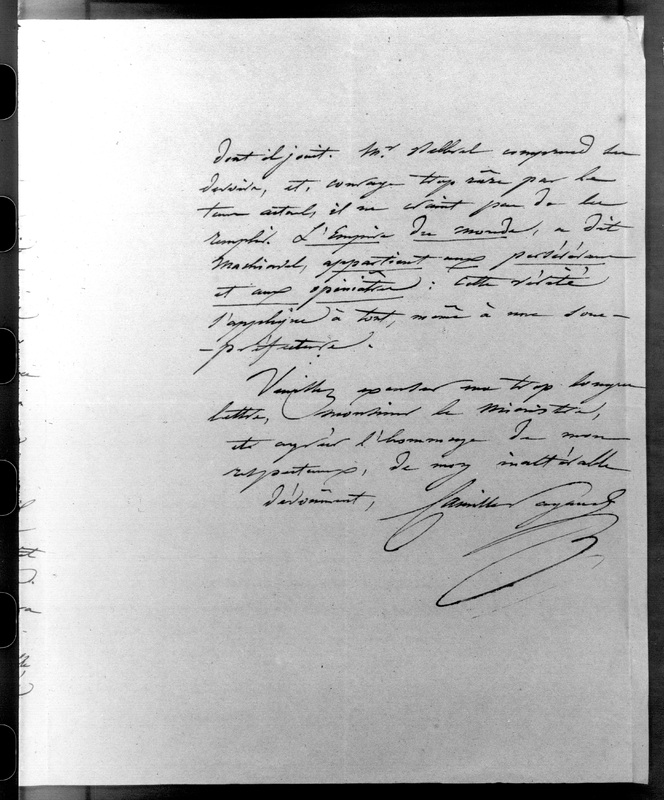 dont il jouit. Mr Delbral comprend ses
devoirs, et, courage trop rare par le
tems actuel, il ne craint pas de les
remplir. L'Empire du monde, a dit
Machiavel, appartient aux persévérans
et aux opiniâtres : cette vérité
s'applique à tout, même à une sous-
-préfecture.
Veuillez excuser ma trop longue
lettre, Monsieur le Ministre,
et agréer l'hommage de mon
respectueux, de mon inaltérable
dévoûment,
Camille